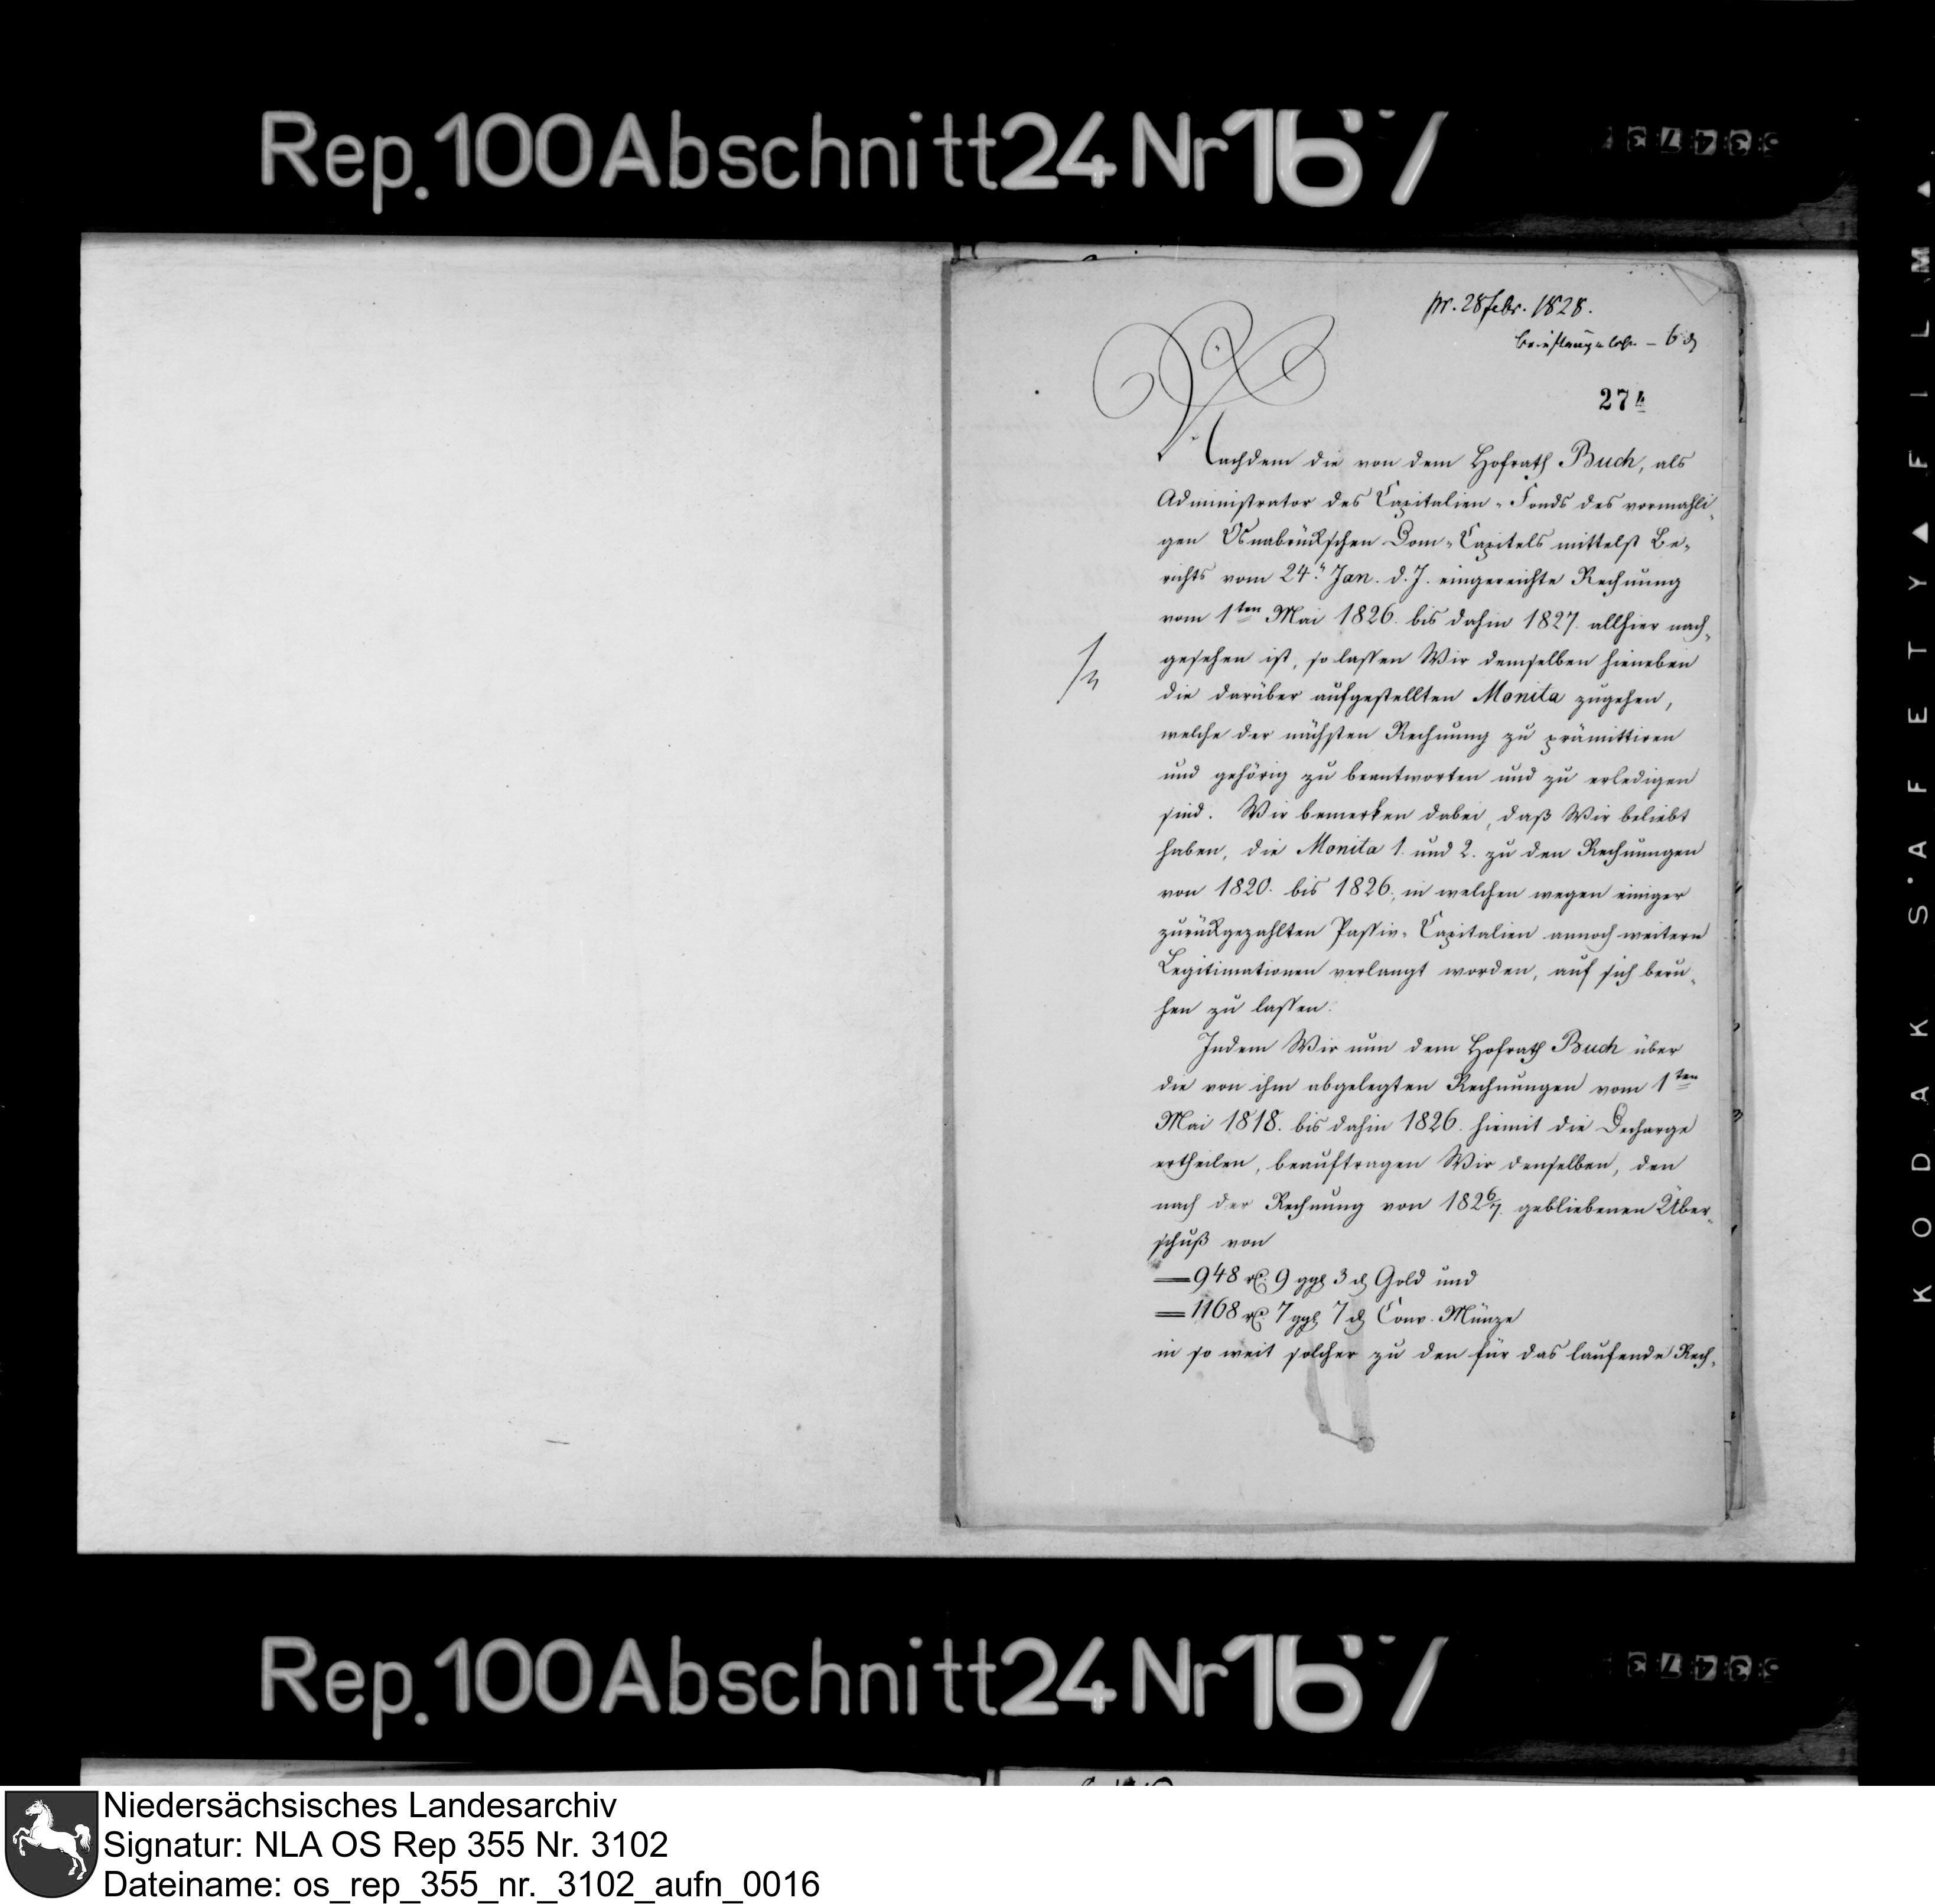 Rep. 100 Abschnitt 24 Nr 167
pr. 28 Febr. 1828.
– 6 ₰
274
Nachdem die von dem Hofrath Buch, als
Administrator des Capitalien-Fonds des vormahli-
gen Osnabrückschen Dom-Capitels mittelst Be-
richts vom 24. Jan. d. J. eingereichte Rechnung
vom 1ten Mai 1826. bis dahin 1827. allhier nach-
gesehen ist, so lassen Wir demselben hieneben
die darüber aufgestellten Monita zugehen,
welche der nächsten Rechnung zu prämittiren
und gehörig zu beantworten und zu erledigen
sind. Wir bemerken dabei, daß Wir beliebt
haben, die Monita 1. und 2. zu den Rechnungen
von 1820. bis 1826., in welchen wegen einiger
zurückgezahlten Passiv-Capitalien annoch weitere
Legitimationen verlangt worden, auf sich beru-
hen zu lassen.
Indem Wir nun dem Hofrath Buch über
die von ihm abgelegten Rechnungen vom 1ten
Mai 1818. bis dahin 1826. hiemit die Decharge
ertheilen, beauftragen Wir denselben, den
nach der Rechnung von 1826/7. gebliebenen Über-
schuß von
948 rℓ. 9 ggl 3 ₰ Gold und
1168 rℓ. 7 ggl 7 ₰ Conv. Münze
in so weit solcher zu den für das laufende Rech-
KODAK S.AFETY▲FILM▲
Rep. 100 Abschnitt 24 Nr 167
Niedersächsisches Landesarchiv
Signatur: NLA OS Rep 355 Nr. 3102
Dateiname: os_rep_355_nr._3102_aufn_0016